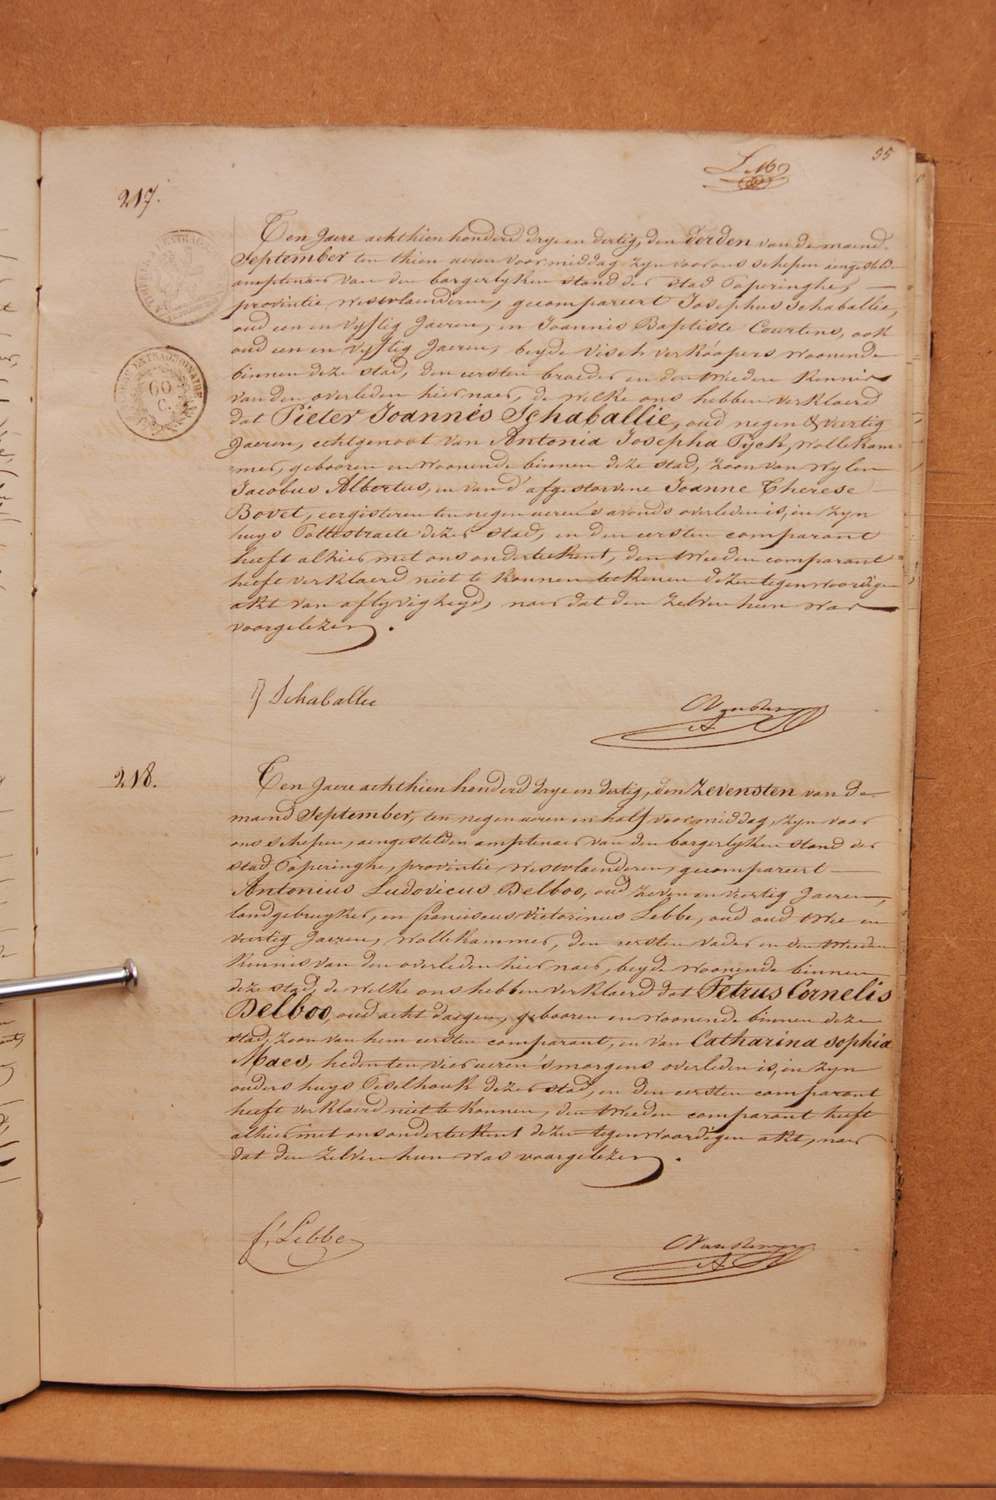 55
217.
Ten Jaere achthien honderd drye en dertig, den Vierden van de maend
September ten thien ueren voormiddag zyn voor ons schepen aengestelde
amptenaer van den borgerlyken stand der stad Poperinghe,
provintie westvlaenderen, gecompareert Josephus Schaballie,
oud een en vyftig Jaeren, en Joannes Baptiste Courtens, ook
oud een en vyftig Jaeren, beyde visch verkoopers woonende
binnen deze stad, den eersten broeder en den tweeden Kennis
van den overleden hier naer, de welke ons hebben verklaerd
dat Pieter Joannes Schaballie, oud negen & veertig
Jaeren, echtgenoot van Antonia Josepha Tyck, wollekam-
-mer, gebooren en woonende binnen deze stad, zoon van wylen
Jacobus Albertus, en van d'afgestorvene Joanne Therese
Bovet, eergisteren ten negen ueren s'avonds overleden is, in zyn
huys Pottestraete dezer stad, en den eersten comparant
heeft alhier met ons onderteekent, den tweeden comparant
heeft verklaerd niet te konnen teekenen dezen tegenwoordigen
akt van aflyvigheyd, naer dat den zelven hun was
voorgelezen.
J Schaballie
218.
Ten Jaere achthien honderd drye en dertig, den Zevensten van de
maend September, ten negen ueren en half voormiddag, zyn voor
ons schepen, aengestelden amptenaer van den borgerlyken stand der
stad Poperinghe, provintie westvlaenderen, gecompareert
Antonius Ludovicus Delboo, oud zeven en veertig Jaeren,
landgebruyker, en franciscus Victorinus Lebbe, oud oud twee en
veertig Jaeren, wollekammer, den eersten vader en den tweeden
Kennis van den overleden hier naer, beyde woonende binnen
deze stad, de welke ons hebben verklaerd dat Petrus Cornelis
Delboo, oud acht daegen, gebooren en woonende binnen deze
stad, zoon van hem eersten comparant, en van Catharina sophia
Maes, heden ten vier ueren s'morgens overleden is, in zyn
ouders huys Peselhouk dezer stad, en den eersten comparant
heeft verklaerd niet te konnen, den tweeden comparant heeft
alhier met ons onderteekent dezen tegenwoordigen akt, naer
dat den zelven hun was voorgelezen.
f. Lebbe